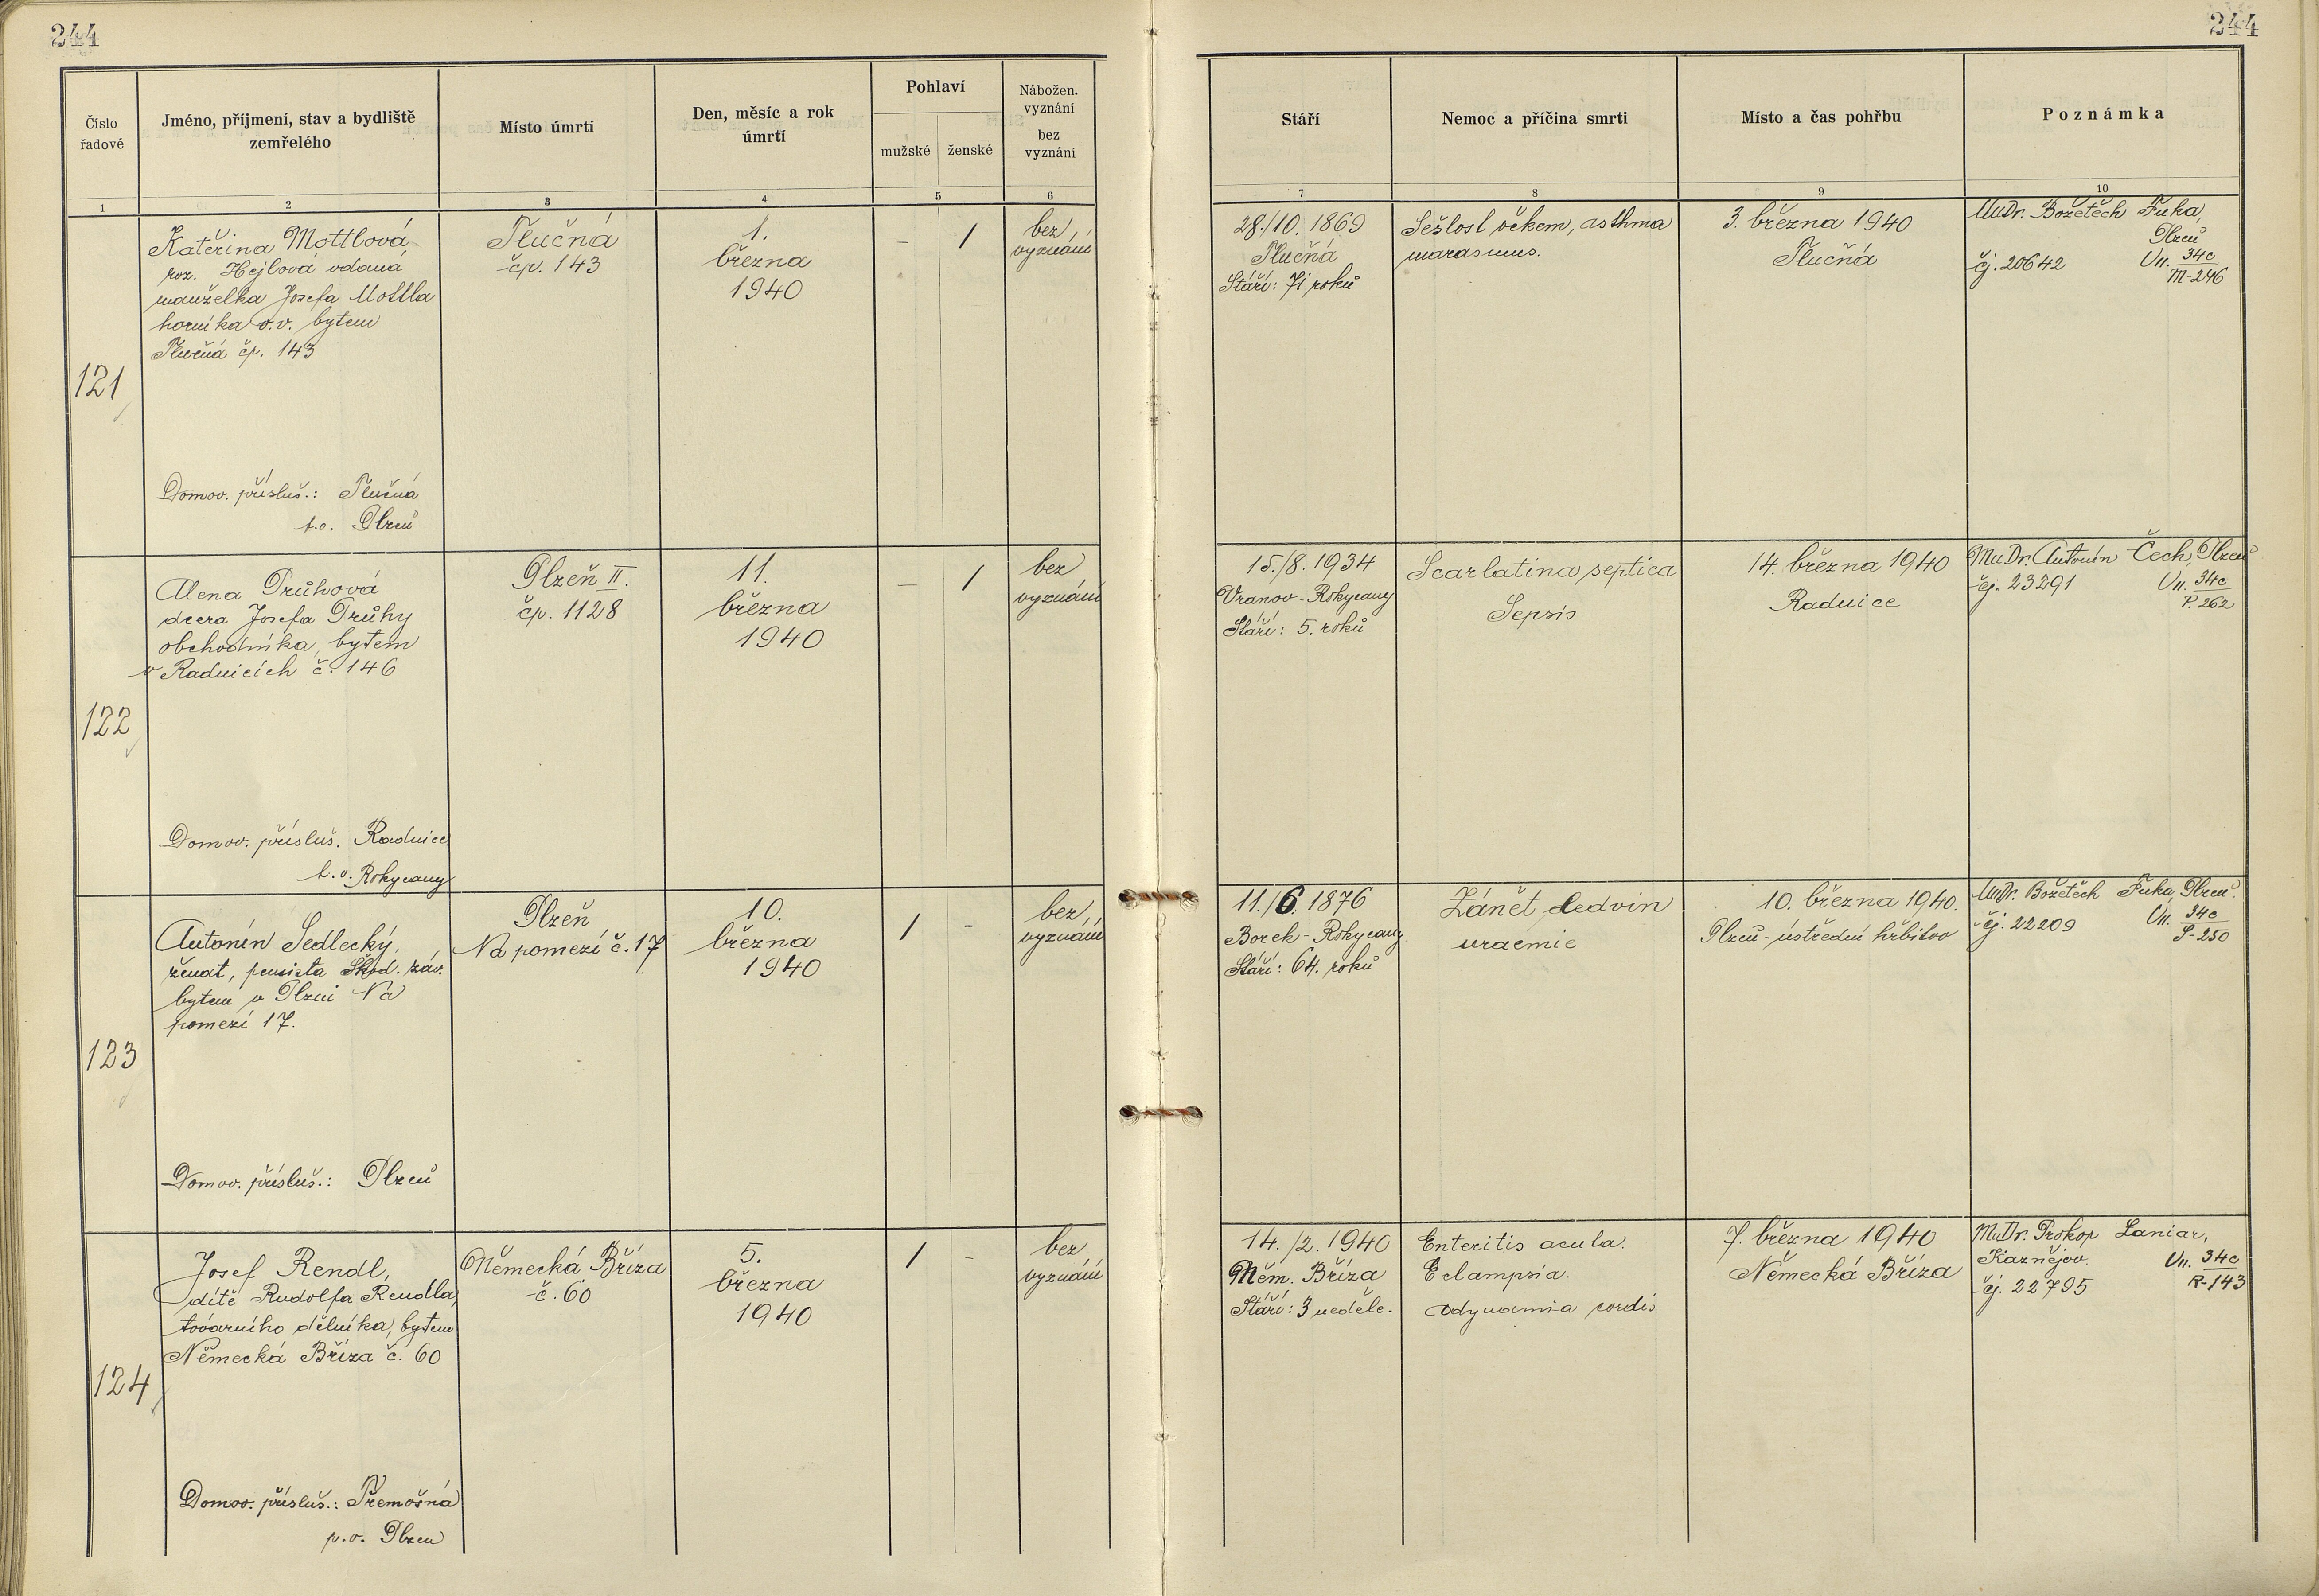 244
244
Číslo
řadové
Jméno, příjmení, stav a bydliště
zemřelého
Místo úmrtí
Den, měsíc a rok
úmrtí
Pohlaví
mužské
ženské
Nábožen.
vyznání
bez
vyznání
Stáří
Nemoc a příčina smrti
Místo a čas pohřbu
Poznámka
1
2
3
4
5
6
7
8
9
10
121
Kateřina Mottlová
roz. Hejlová vdaná
manželka Josefa Mottla
horníka v.v. bytem
Tlučná čp. 143
Domov. přísluš.: Tlučná
t.o. Plzeň
Tlučná
čp. 143
1.
března
1940
– 1
bez
vyznání
28./10. 1869
Tlučná
Stáří: 71 roků
Sešlost věkem, asthma
marasmus.
3. března 1940
Tlučná
MuDr. Božetěch Fuka,
Plzeň
čj. 20642 Vn. 34c
M-246
122
Alena Průhová
dcera Josefa Průhy
obchodníka, bytem
v Radnicích č. 146
Domov. přísluš. Radnice
t.o. Rokycany
Plzeň II.
čp. 1128
11.
března
1940
– 1
bez
vyznání
15./8. 1934
Vranov-Rokycany
Stáří: 5. roků
Scarlatina septica
Sepsis
14. března 1940
Radnice
MuDr. Antonín Čech, Plzeň
čj. 23291 Vn. 34c
P. 262
123
Antonín Sedlecký,
ženat, pensista Škod. záv.
bytem v Plzni Na
pomezí 17.
Domov. přísluš.: Plzeň
Plzeň
Na pomezí č. 17
10.
března
1940
1 –
bez
vyznání
11./6. 1876
Borek-Rokycany
Stáří: 64. roků
Zánět ledvin
uraemie
10. března 1940.
Plzeň-ústřední hřbitov
MuDr. Božetěch Fuka, Plzeň.
čj. 22209 Vn. 34c
S-250
124
Josef Rendl,
dítě Rudolfa Rendla,
továrního dělníka, bytem
Německá Bříza č. 60
Domov. přísluš.: Třemošná
p.o. Plzeň
Německá Bříza
č. 60
5.
března
1940
1 –
bez
vyznání
14./2. 1940
Něm. Bříza
Stáří: 3 neděle.
Enteritis acuta.
Eclampsia.
Adynamia cordis
7. března 1940
Německá Bříza
MuDr. Prokop Laniar,
Kaznějov.
čj. 22795 Vn. 34c
R-143